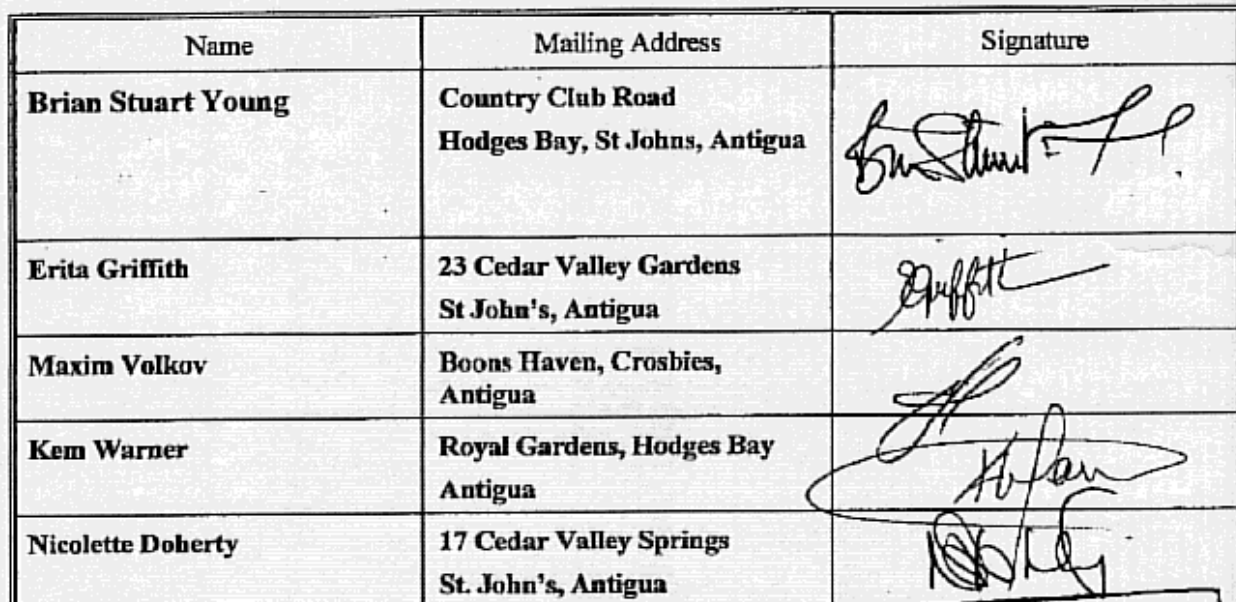 Name Mailing Address Signature
Brian Stuart Young Country Club Road
Hodges Bay, St Johns, Antigua
Erita Griffith 23 Cedar Valley Gardens
St John's, Antigua
EGriffith
Maxim Volkov Boons Haven, Crosbies,
Antigua
Kem Warner Royal Gardens, Hodges Bay
Antigua
Nicolette Doherty 17 Cedar Valley Springs
St. John's, Antigua